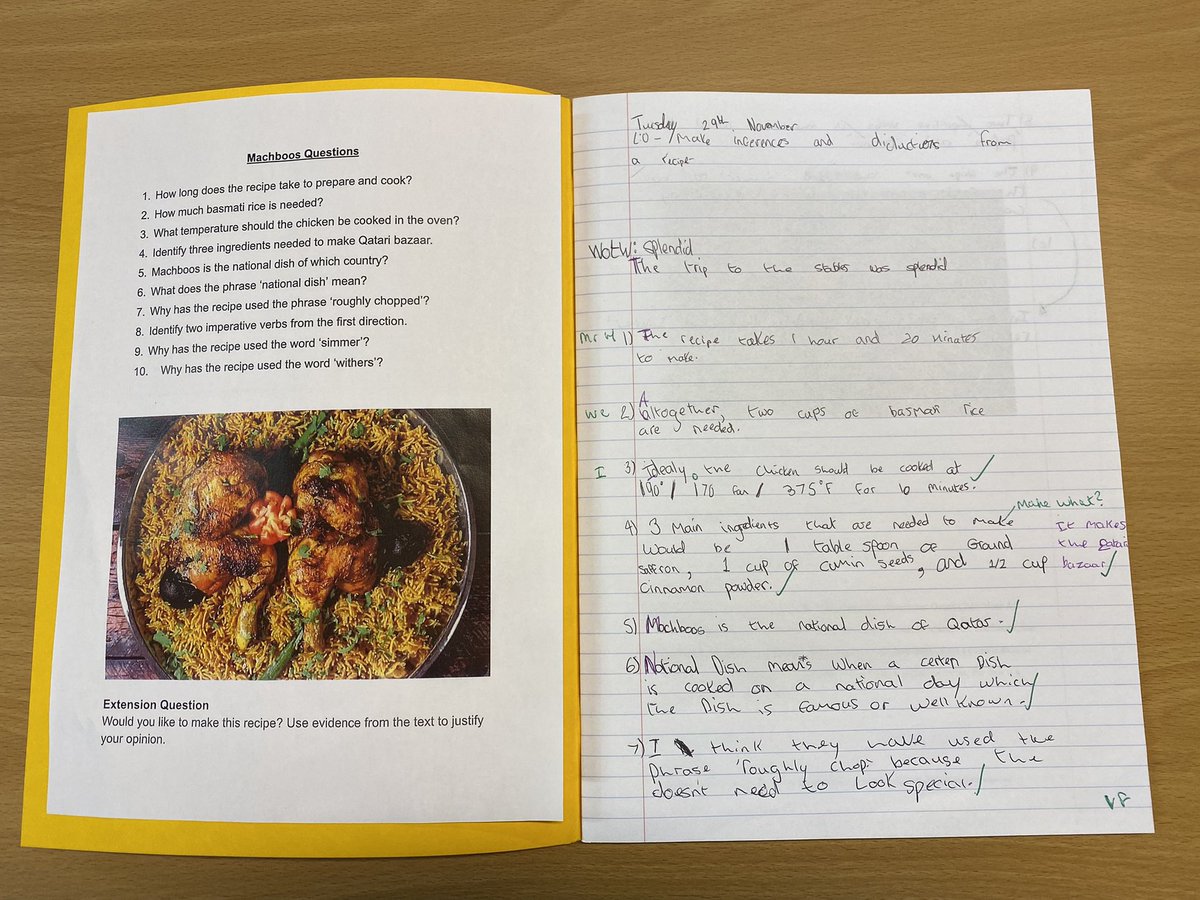 Machboos Questions
1. How long does the recipe take to prepare and cook?
2. How much basmati rice is needed?
3. What temperature should the chicken be cooked in the oven?
4. Identify three ingredients needed to make Qatari bazaar.
5. Machboos is the national dish of which country?
6. What does the phrase ‘national dish’ mean?
7. Why has the recipe used the phrase ‘roughly chopped’?
8. Identify two imperative verbs from the first direction.
9. Why has the recipe used the word ‘simmer’?
10. Why has the recipe used the word ‘withers’?
Extension Question
Would you like to make this recipe? Use evidence from the text to justify
your opinion.
Tuesday 29th November
LO - Make inferences and from
a recipe
WOTW: Splendid
The trip to the stables was splendid
Mr H 1) The recipe takes 1 hour and 20 minutes
to make.
We 2) Altogether, two cups of basmati rice
are needed.
I 3) Idealy, the chicken should be cooked at
190°/ 170 fan / 375°F for 10 minutes.
Make what?
4) 3 Main ingredients that are needed to make
It makes
would be 1 table spoon of Ground
the Qatari
saffron, 1 cup of cumin seeds, and 1/2 cup
bazaar
Cinnamon powder.
5) Machboos is the national dish of Qatar.
6) National Dish means when a certen Dish
is cooked on a national day which
the Dish is famous or well known.
7) I think they have used the
phrase 'roughly chop' because the
doesn't need to Look special.
VF